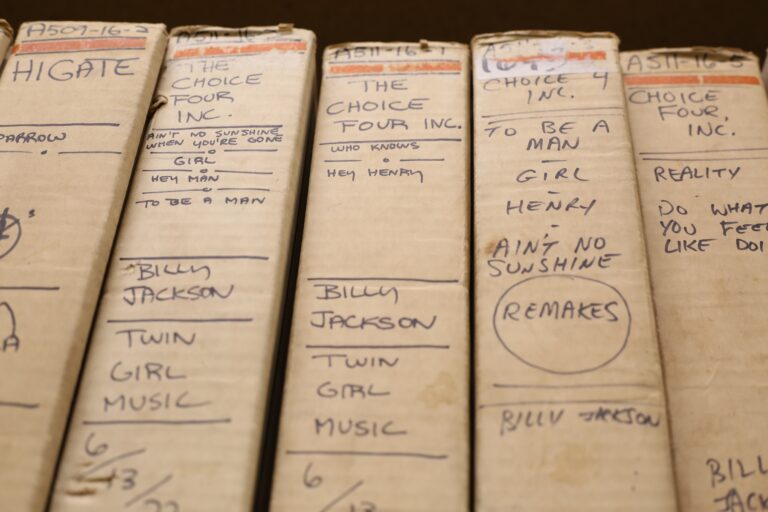 A509-16-2
HIGATE
PARROW
THE
CHOICE
FOUR
INC.
AIN'T NO SUNSHINE
WHEN YOU'RE GONE
GIRL
HEY MAN
TO BE A MAN
BILLY
JACKSON
TWIN
GIRL
MUSIC
6/13/72
A511-16-1
THE
CHOICE
FOUR INC.
WHO KNOWS
HEY HENRY
BILLY
JACKSON
TWIN
GIRL
MUSIC
6/13
CHOICE 4
INC.
TO BE A
MAN
GIRL
HENRY
AIN'T NO
SUNSHINE
REMAKES
BILLY JACKSON
A511-16-5
CHOICE
FOUR,
INC.
REALITY
DO WHAT
YOU FEEL
LIKE DOI
BILL
JACK